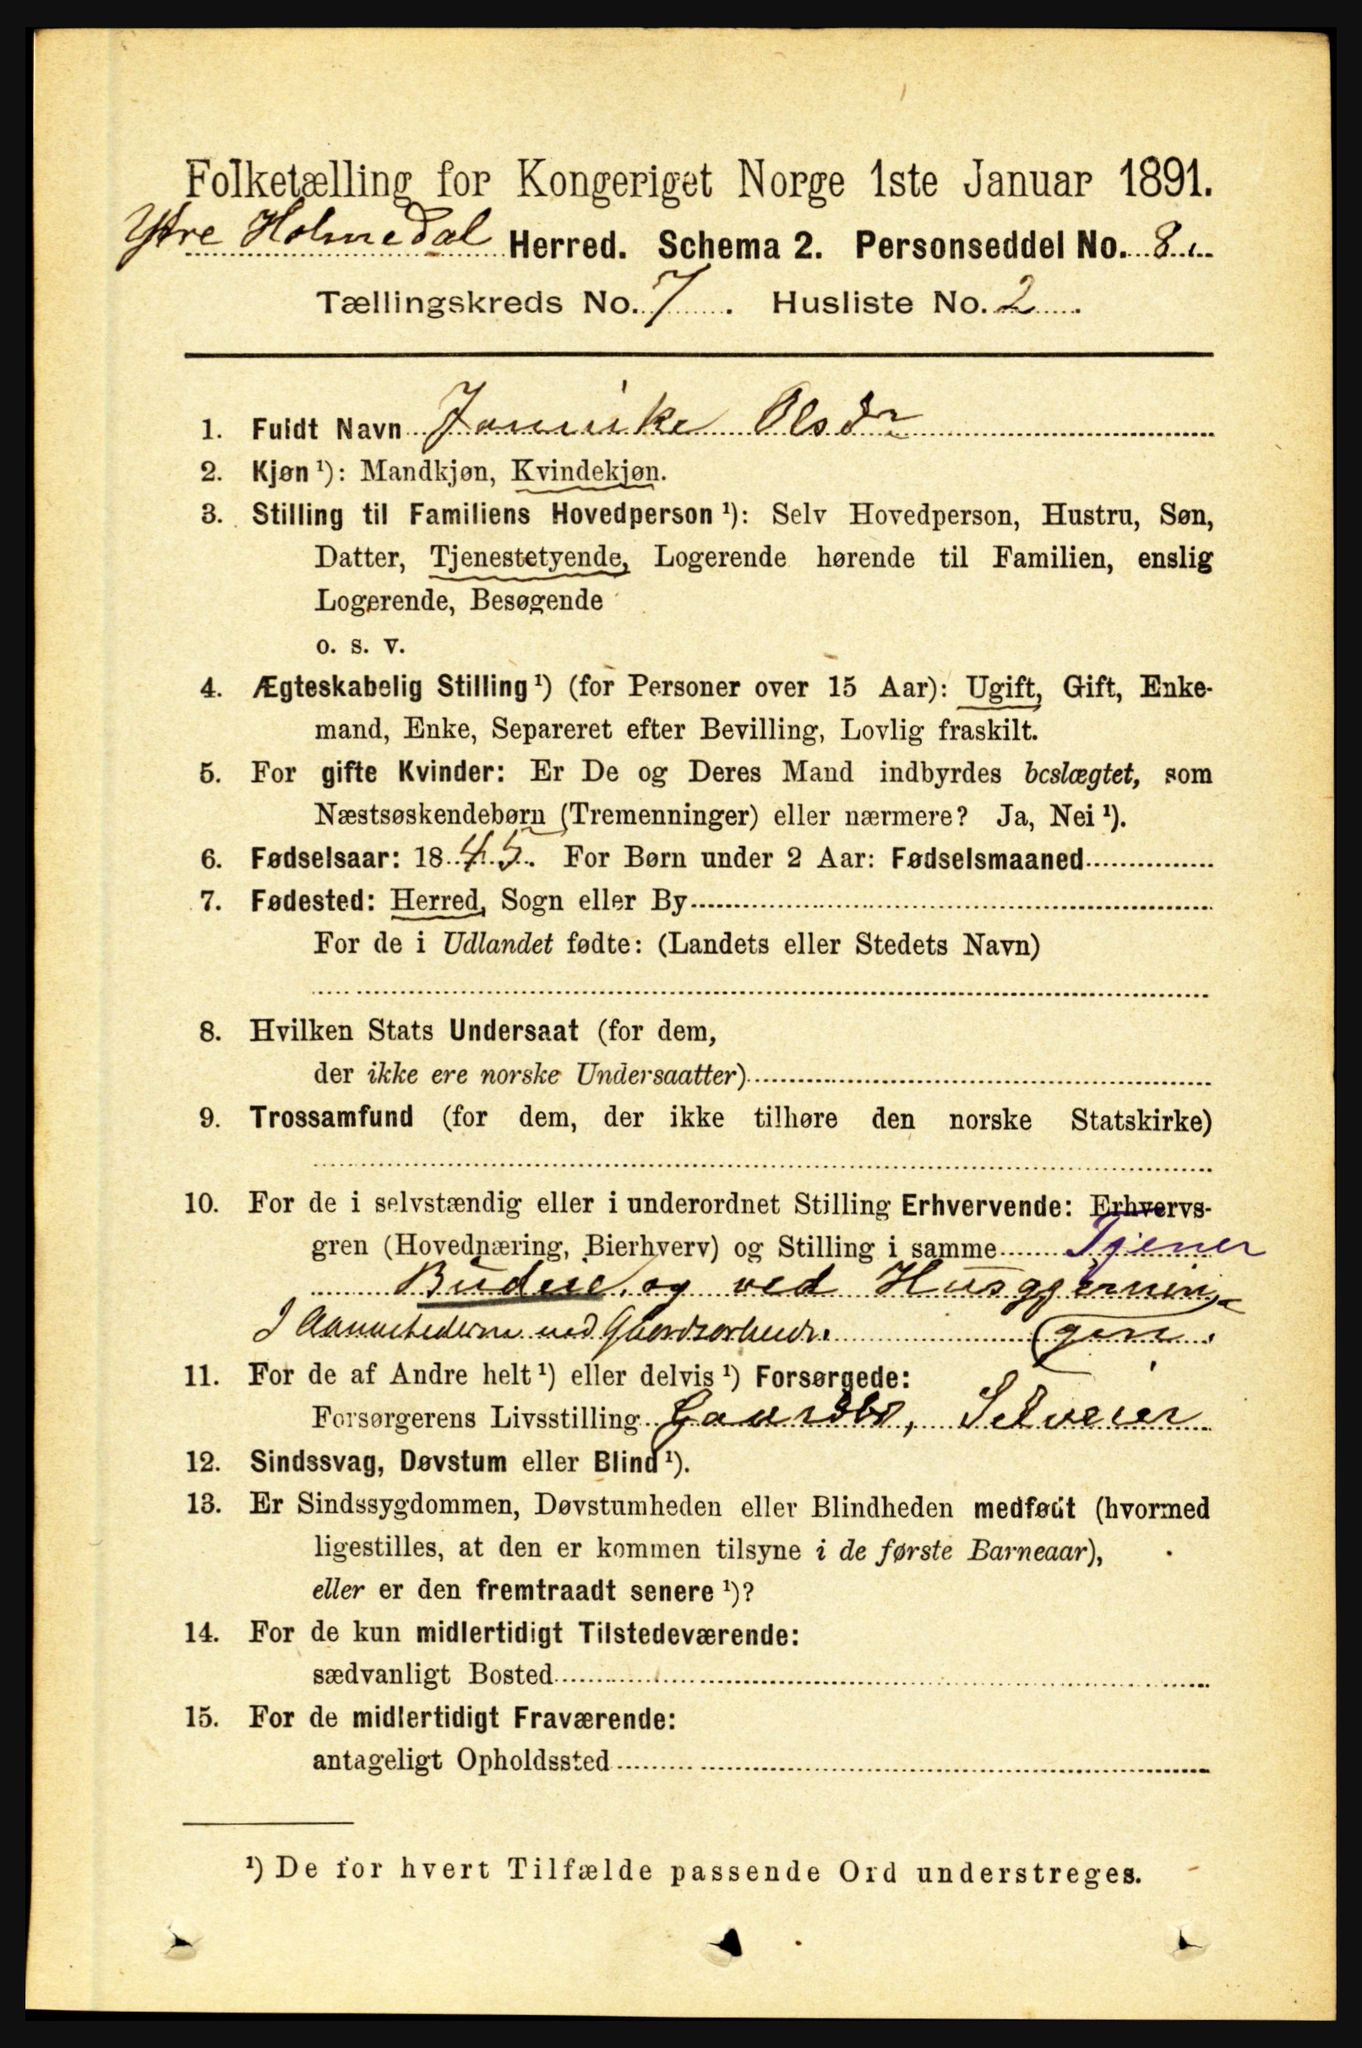 Folketælling for Kongeriget Norge 1ste Januar 1891.
Ytre Holmedal Herred. Schema 2. Personseddel No. 8
Tællingskreds No. 7. Husliste No. 2.
1. Fuldt Navn Jannike Olsdr
2. Kjøn ¹): Mandkjøn, Kvindekjøn.
3. Stilling til Familiens Hovedperson ¹): Selv Hovedperson, Hustru, Søn,
Datter, Tjenestetyende, Logerende hørende til Familien, enslig
Logerende, Besøgende
o. s. v.
4. Ægteskabelig Stilling ¹) (for Personer over 15 Aar): Ugift, Gift, Enke-
mand, Enke, Separeret efter Bevilling, Lovlig fraskilt.
5. For gifte Kvinder: Er De og Deres Mand indbyrdes beslægtet, som
Næstsøskendebørn (Tremenninger) eller nærmere? Ja, Nei ¹).
6. Fødselsaar: 1845. For Børn under 2 Aar: Fødselsmaaned
7. Fødested: Herred, Sogn eller By
For de i Udlandet fødte: (Landets eller Stedets Navn)
8. Hvilken Stats Undersaat (for dem,
der ikke ere norske Undersaatter)
9. Trossamfund (for dem, der ikke tilhøre den norske Statskirke)
10. For de i selvstændig eller i underordnet Stilling Erhvervende: Erhvervs-
gren (Hovednæring, Bierhverv) og Stilling i samme Tjener
Budeie og ved Husgjernin-
I Aannetiderne ved Gaardsarbeide. gen.
11. For de af Andre helt ¹) eller delvis ¹) Forsørgede:
Forsørgerens Livsstilling Gaardbr, Selveier
12. Sindssvag, Døvstum eller Blind ¹).
13. Er Sindssygdommen, Døvstumheden eller Blindheden medfødt (hvormed
ligestilles, at den er kommen tilsyne i de første Barneaar),
eller er den fremtraadt senere ¹)?
14. For de kun midlertidigt Tilstedeværende:
sædvanligt Bosted
15. For de midlertidigt Fraværende:
antageligt Opholdssted
¹) De for hvert Tilfælde passende Ord understreges.